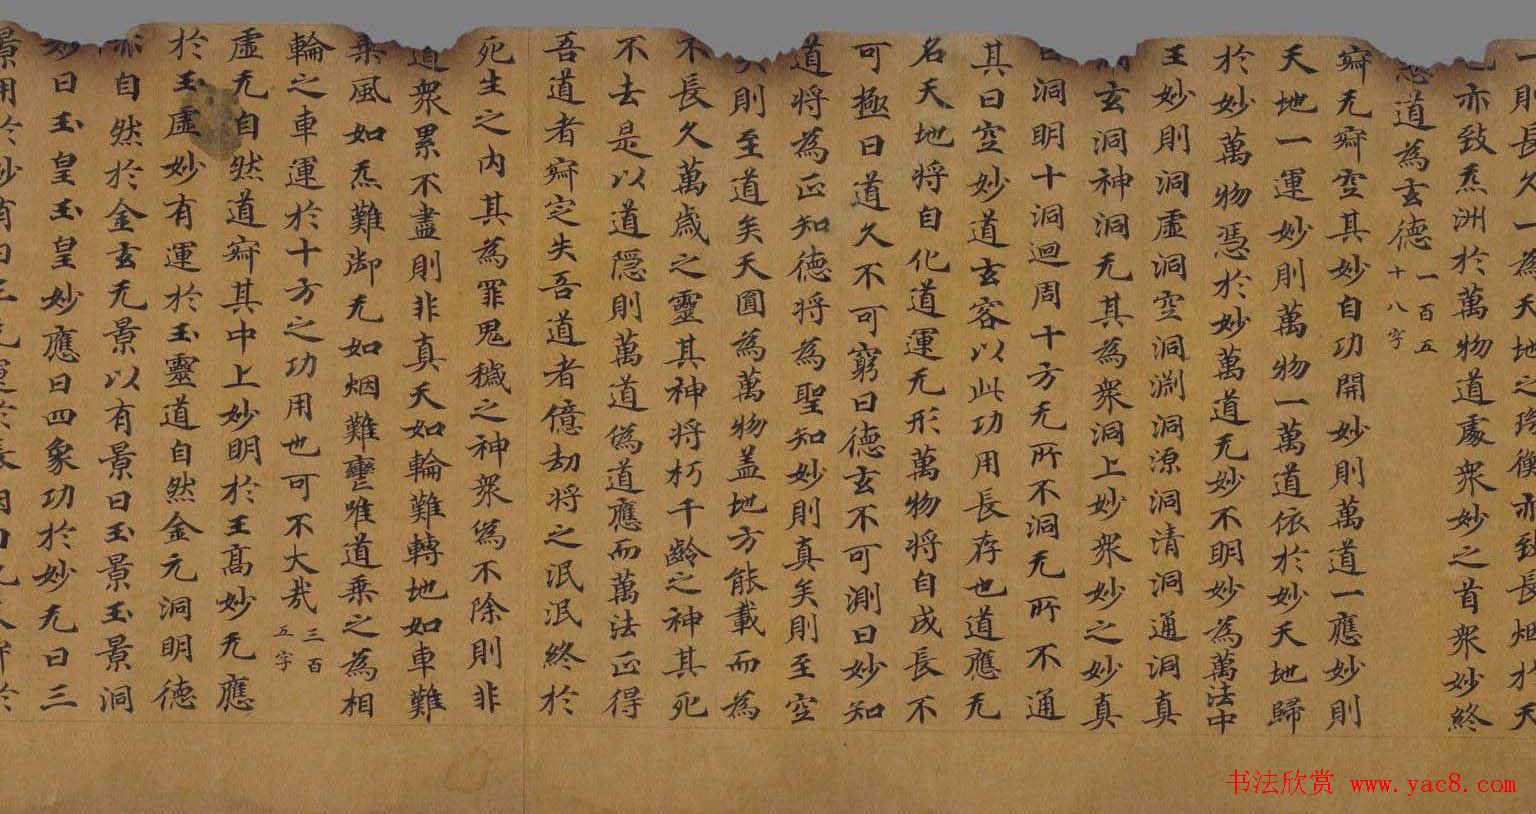 一則長久一為天地之珎衡亦致長烟於天
亦致炁洲於萬物道處衆妙之首衆妙終
道為玄德一百五十八字
寂无寂空其妙自功開妙則萬道一應妙則
天地一運妙則萬物一萬道依於妙天地歸
於妙萬物憑於妙萬道无妙不明妙為萬法中
王妙則洞虛洞空洞渊洞源洞清洞通洞真
玄洞神洞无其為衆洞上妙衆妙之妙真
洞明十洞迴周十方无所不洞无所不通
其曰空妙道玄容以此功用長存也道應无
名天地將自化道運无形萬物將自成長不
可極曰道久不可窮曰德玄不可測曰妙知
道將為正知德將為聖知妙則真矣則至空
則至道矣天圓為萬物盖地方能載而為
不長久萬歲之靈其神將朽千齡之神其死
不去是以道隱則萬道偽道應而萬法正得
吾道者寂定失吾道者億劫將之泯泯終於
死生之內其為罪鬼穢之神衆為不除則非
迫衆累不盡則非真天如輪難轉地如車難
乘風如炁難御无如烟難唯道乘之為相
輪之車運於十方之功用也可不大哉三百五字
虛无自然道寂其中上妙明於王高妙无應
於玉虛妙有運於玉靈道自然金元洞明德
亦自然於金玄无景以有景曰玉景玉景洞
妙曰玉皇玉皇妙應曰四象功於妙无曰三
景用於妙有曰三
书法欣赏 www.yac8.com